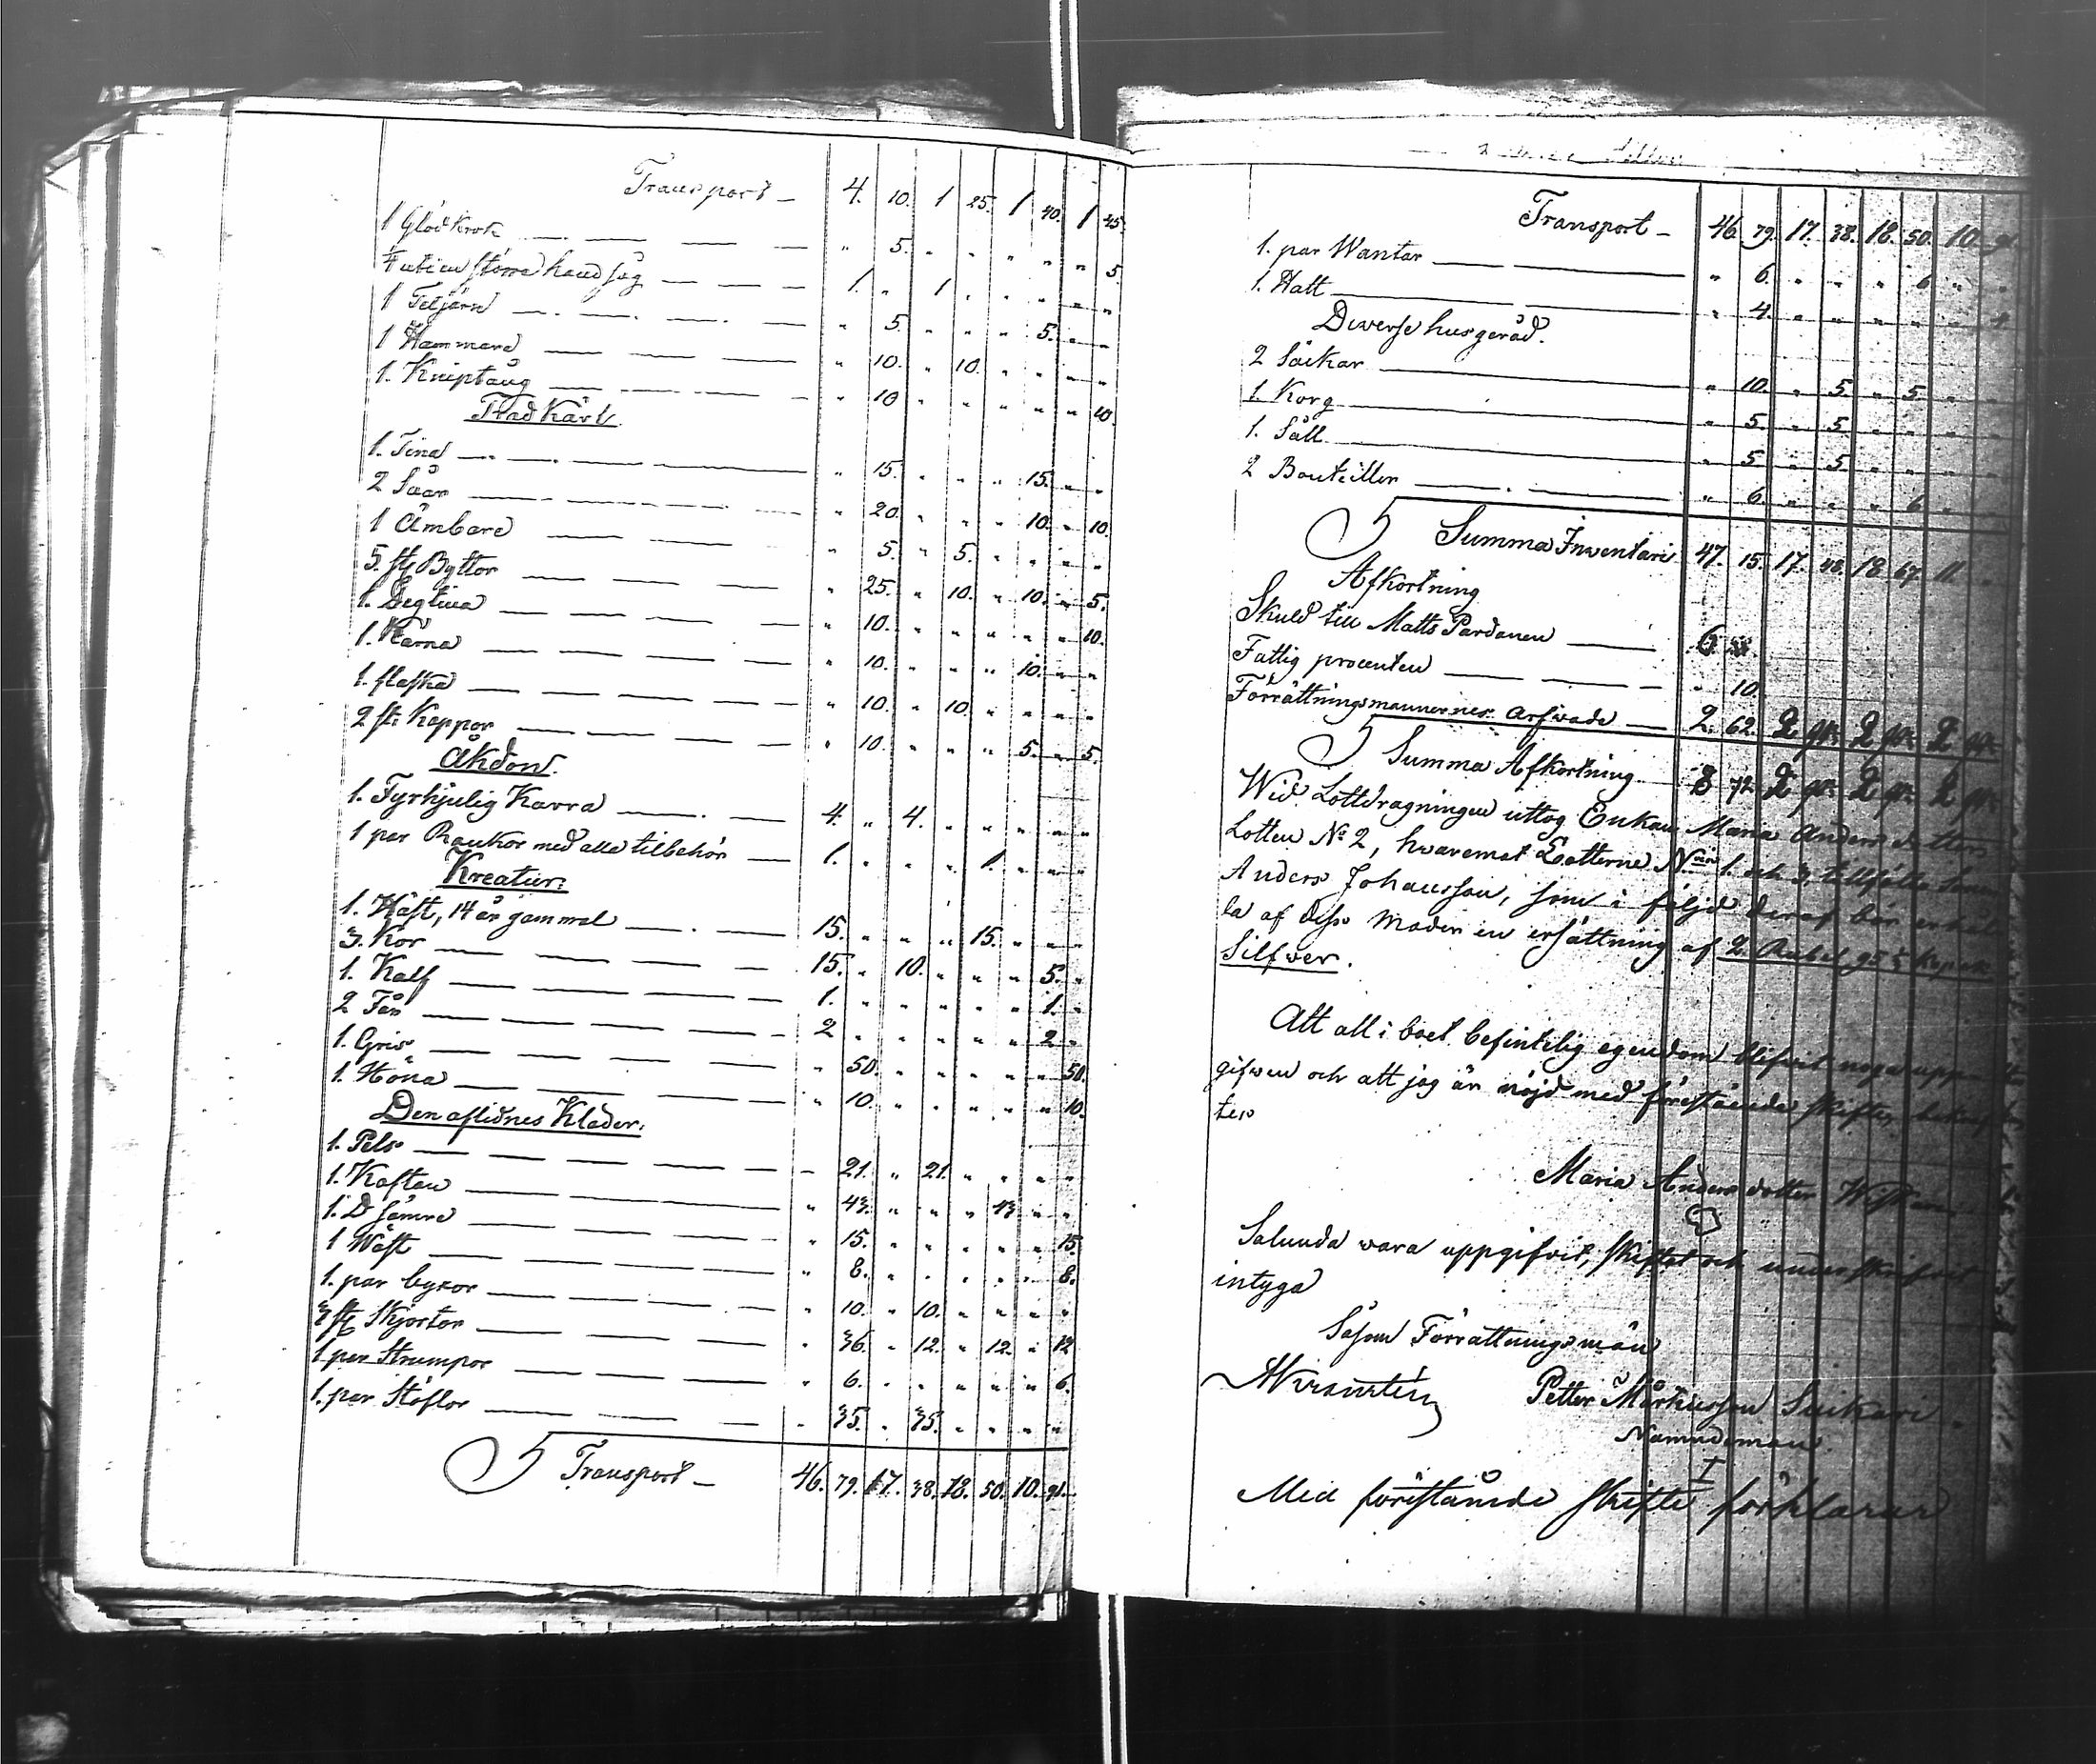 Transport — 4. 10. 1 25. 1 40. 1 45.
1 Glödkrok — " 5. " " " " " 5
¼ uti en större handsåg — 1. " 1. " " " " "
1 Teljern — " 5. " " " 5. " "
1 Hammare — " 10. " 10. " " " "
1. Kniptång — " 10 " " " " " 10.
Träd Kärl
1. Tina — " 15. " " " 15. " "
2 Såar — " 20. " " " 10. " 10.
1 Ämbare — " 5. " 5. " " " "
5. st Byttor — " 25. " 10. " 10. " 5.
1. Degtina — " 10. " " " " " 10.
1. Kärna — " 10. " " " 10. " "
1. flaska — " 10. " 10. " " " "
2 st. Kappor — " 10. " " " 5. " 5.
Åkdon.
1. Fyrhjulig Kärra — 4. " 4. " " " " "
1 par Rankor med alla tilbehör — 1. " " " 1. " " "
Kreatur.
1. Häst, 14 år gammal — 15. " " " 15. " " "
3. Kor — 15. " 10. " " " 5. "
1. Kalf — 1. " " " " " 1. "
2 Får — 2 " " " " " 2 "
1. Gris — " 50. " " " " " 50.
1. Höna — " 10. " " " " " 10.
Den aflidnes Kläder.
1. Pels — " 21. " 21. " " " "
1. Kaftan — " 43. " " " 43 " "
1. D sämre — " 15. " " " " " 15.
1 Wäst — " 8. " " " " " 8.
1. par byxor — " 10. " 10. " " " "
3 st Skjortor — " 36. " 12. " 12. " 12
1 par Strumpor — " 6. " " " " " 6.
1. par Stöflor — " 35. " 35. " " " "
Transport — 46. 79. 17. 38. 18. 50. 10. 91.
Transport — 46. 79. 17. 38. 18. 50. 10. 91.
1. par Wantar — " 6. " " " 6 " "
1. Hatt — " 4. " " " " " 4
Diverse husgeråd.
2 Säckar — " 10. " 5. " 5. "
1. Korg — " 5. " 5. " " "
1. Såll — " 5. " 5. " " "
2 Bouteiller — " 6. " " " 6 "
Summa Inventari 47. 15. 17. 18. 67. 11.
Afkortning
Skuld till Matts Pardanen — 6
Fattig procenten — " 10.
Förrättningsmannernes arfwode — 2. 62. 2 2 2
Summa Afkortning — 8 72 2 2 2
Wid Lottdragningen uttog Enkan Maria Anders dotter
Lotten No 2, hwaremot Lotterne 1. och 3, tillföllo
Anders Johansson, som i följd deraf bör
la af dess Moder en ersättning af 2. Rubel kopek
Silfwer.
Att all i boet befintelig egendom blifvit noga upp
gifwen och att jag är nöjd med förestående skifte,
tes
Maria Anders dotter
Salunda wara uppgifvit, skiftat och underskrifvit
intyga
Såsom Förrättningsmän
Petter Markusson
Nämndeman.
Med förestående skifte förklarar